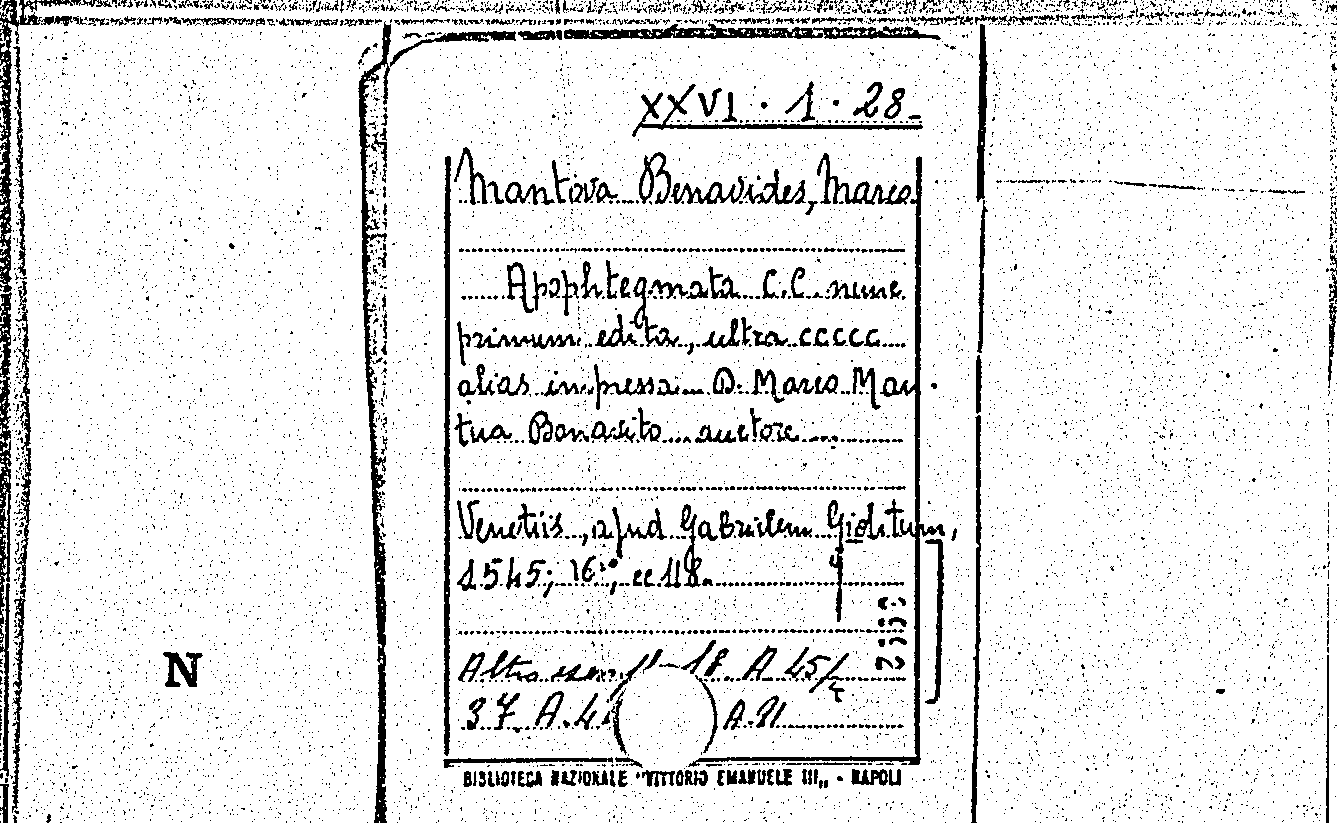 XXVI. 1. 28.
Mantova Benavides, Marco
Apophtegmata C.C. nunc
primum edita, ultra ccccc
alias impressa... D. Marco Man-
tua Bonavito... auctore...
Venetiis, apud Gabrielem Giolitum,
1545; 16°; cc 118.
Altro esempl 18. A 45/
37. A. A.
N
BIBLIOTECA NAZIONALE "VITTORIO EMANUELE III„ - NAPOLI